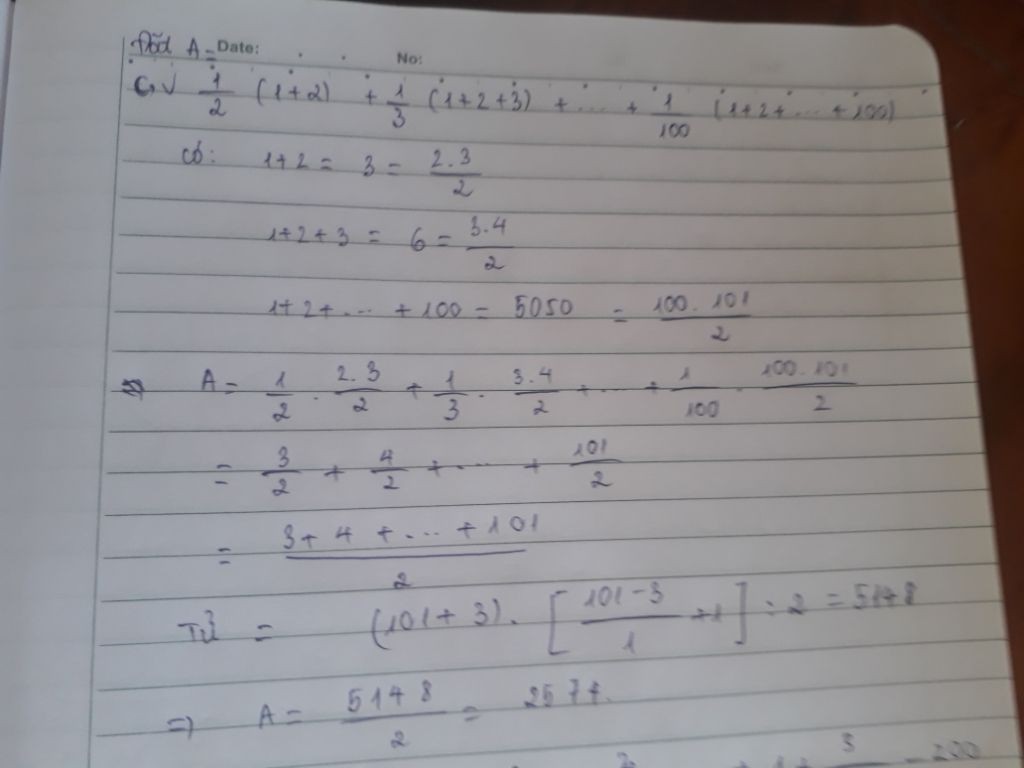 Đặt A = Date: No:
C, √ 1/2 (1+2) + 1/3 (1+2+3) + ... + 1/100 (1+2+ ... + 100)
có: 1+2 = 3 = 2.3/2
1+2+3 = 6 = 3.4/2
1+2+ ... + 100 = 5050 = 100.101/2
=> A = 1/2 . 2.3/2 + 1/3 . 3.4/2 + ... + 1/100 . 100.101/2
= 3/2 + 4/2 + ... + 101/2
= 3+4+ ... +101/2
Tử = (101+3). [101-3/1 +1] : 2 = 5148
=> A = 5148/2 = 2574.